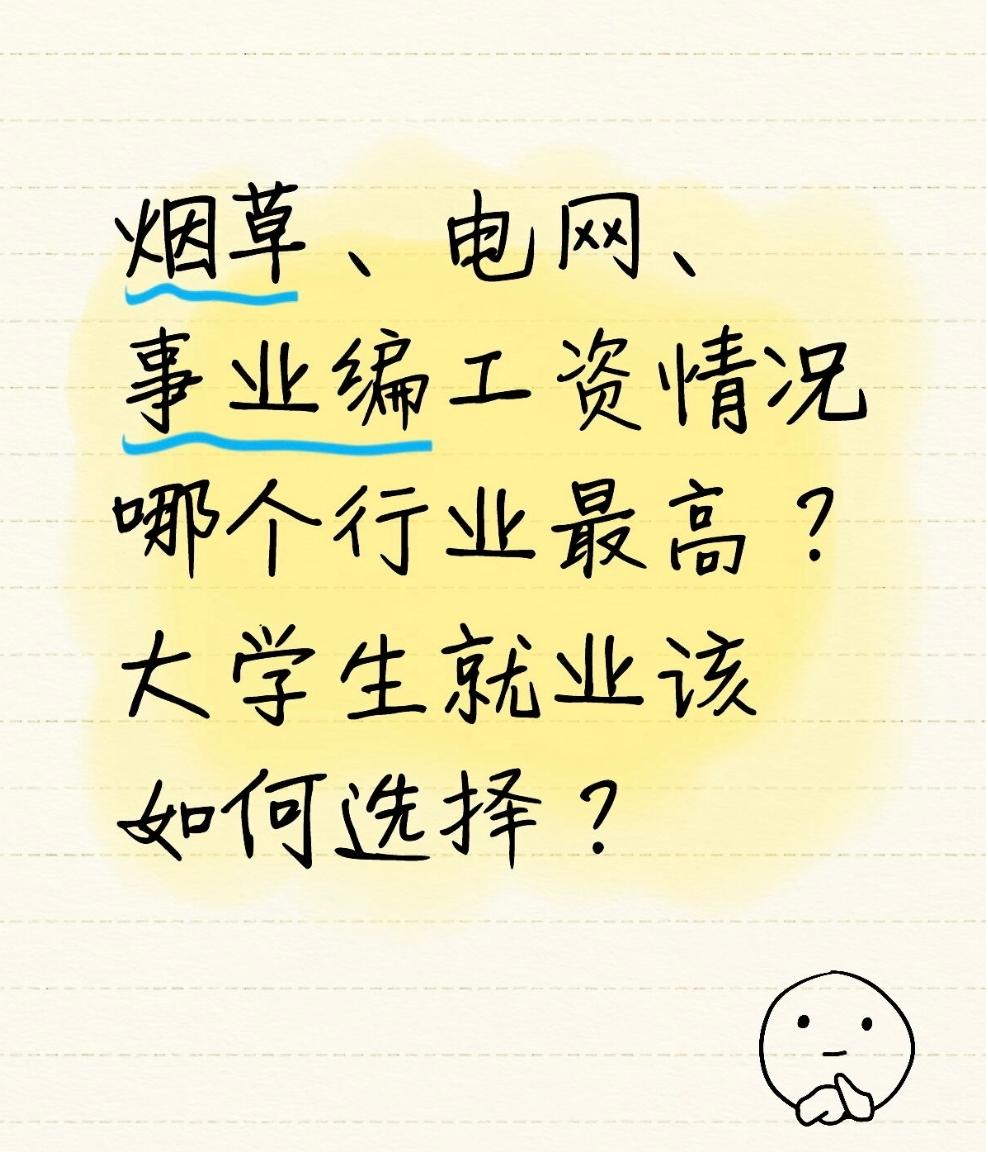 烟草、电网、
事业编工资情况
哪个行业最高？
大学生就业该
如何选择？